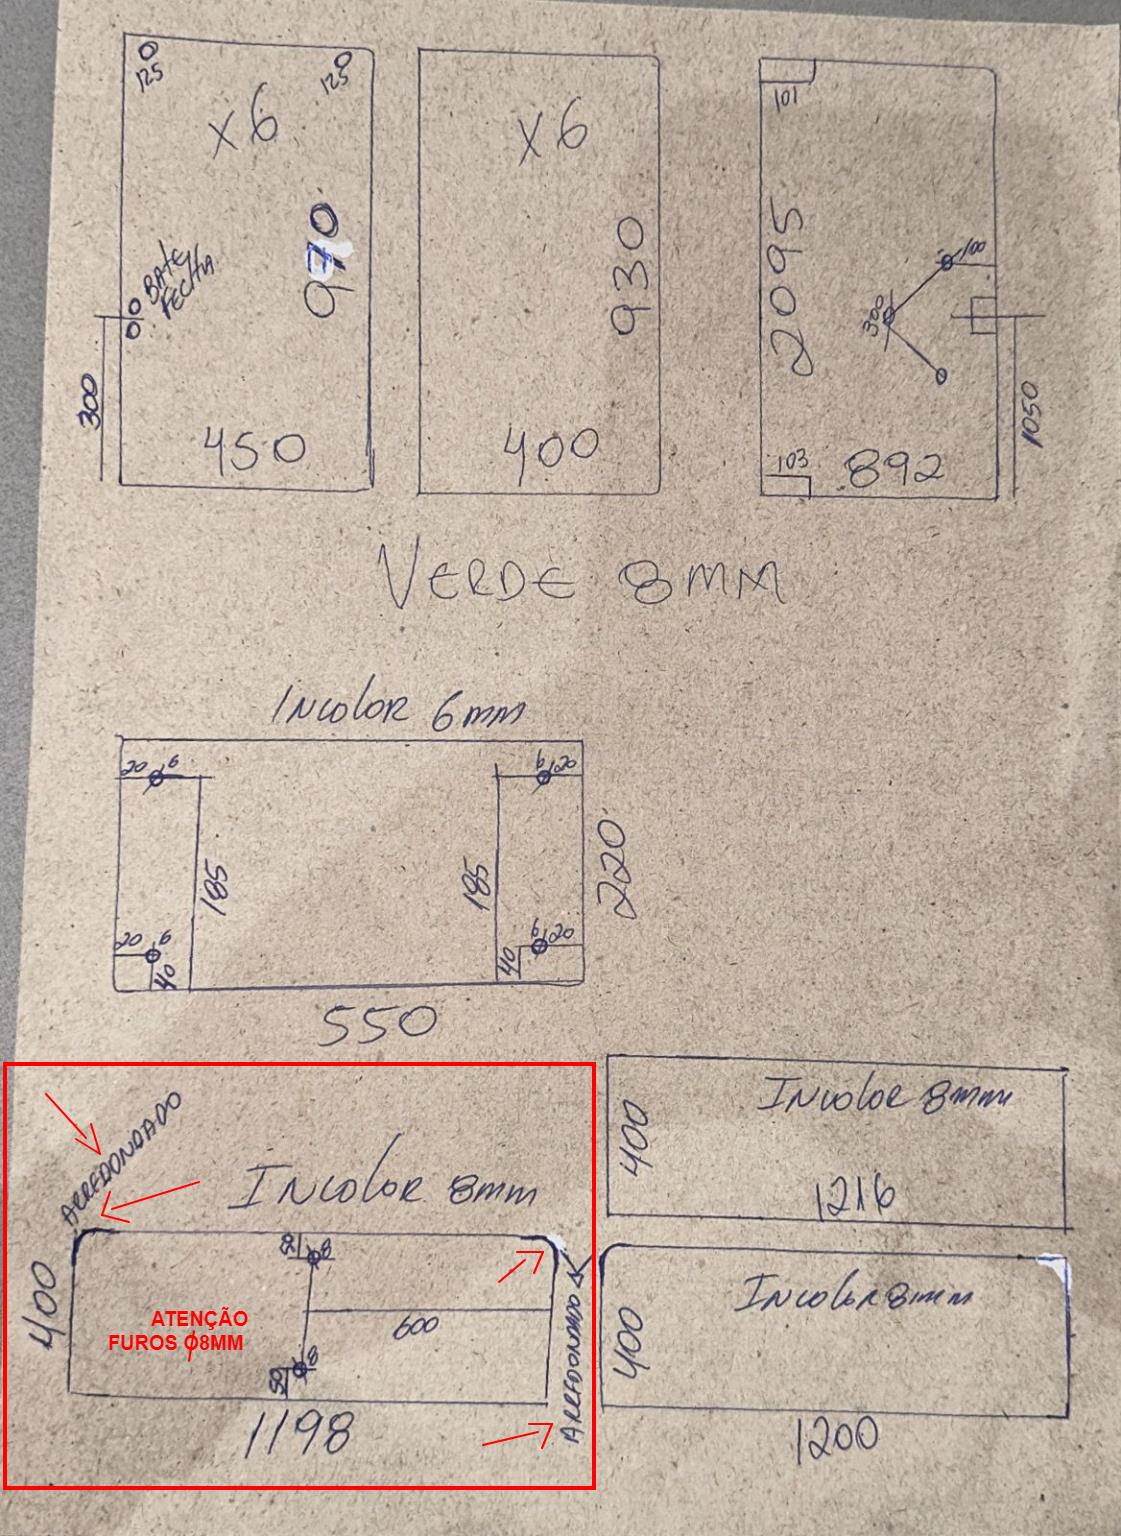 125
125
x6
970
BATE
FECHA
300
450
x6
930
400
101
2095
100
300
1050
103
892
VERDE 8MM
INcoloR 6mm
20 6
6 20
185
185
220
20 6
40
6 20
40
550
ARREDONDADO
INcoloR 8mm
400
8
ATENÇÃO
FUROS ϕ8MM
600
8
ARREDONDADO
1198
INcoloR 8mm
400
1216
INcoloR 8mm
400
1200